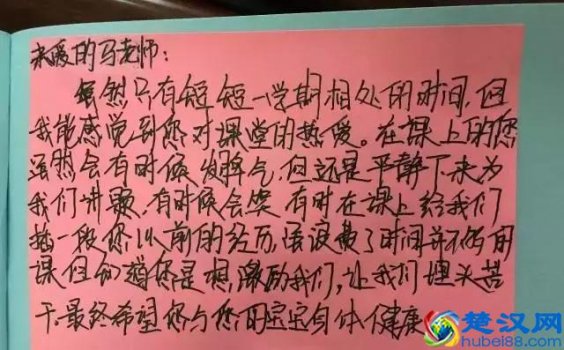 亲爱的马老师：
虽然只有短短一学期相处的时间，但
我能感觉到您对课堂的热爱。在课上的您
虽然会有时候发脾气，但还是平静下来为
我们讲题，有时候会笑 有时在课上给我们
插一段您以前的经历，浪费了时间并不能用
课但知道您是想激励我们，让我们埋头苦
干。最终希望您与您的宝宝身体健康
楚汉网
hubei88.com